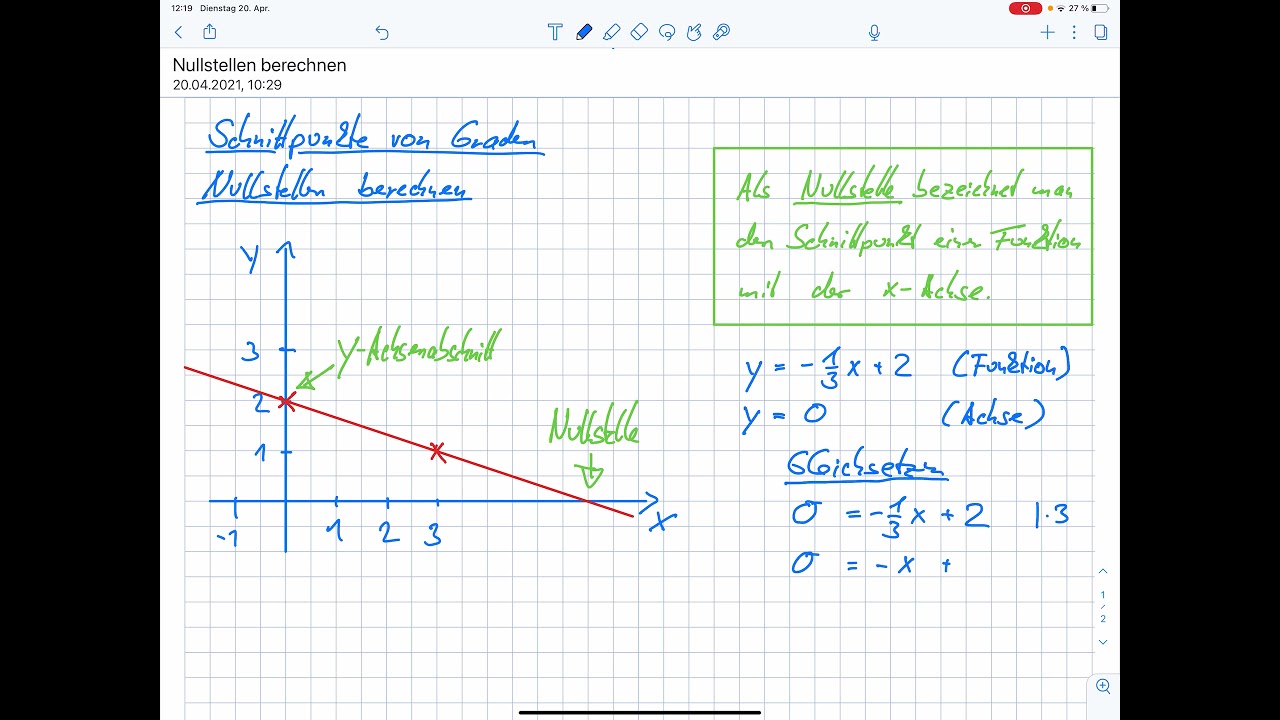 12:19 Dienstag 20. Apr.
27 %
Nullstellen berechnen
20.04.2021, 10:29
Schnittpunkte von Graden
Nullstellen berechnen
Als Nullstelle bezeichnet man
den Schnittpunkt einer Funktion
mit der x-Achse.
y
3
y-Achsenabschnitt
2
1
Nullstelle
-1 1 2 3 x
y = -1/3 x + 2 (Funktion)
y = 0 (Achse)
Gleichsetzen
0 = -1/3 x + 2 |·3
0 = -x +
1
/
2